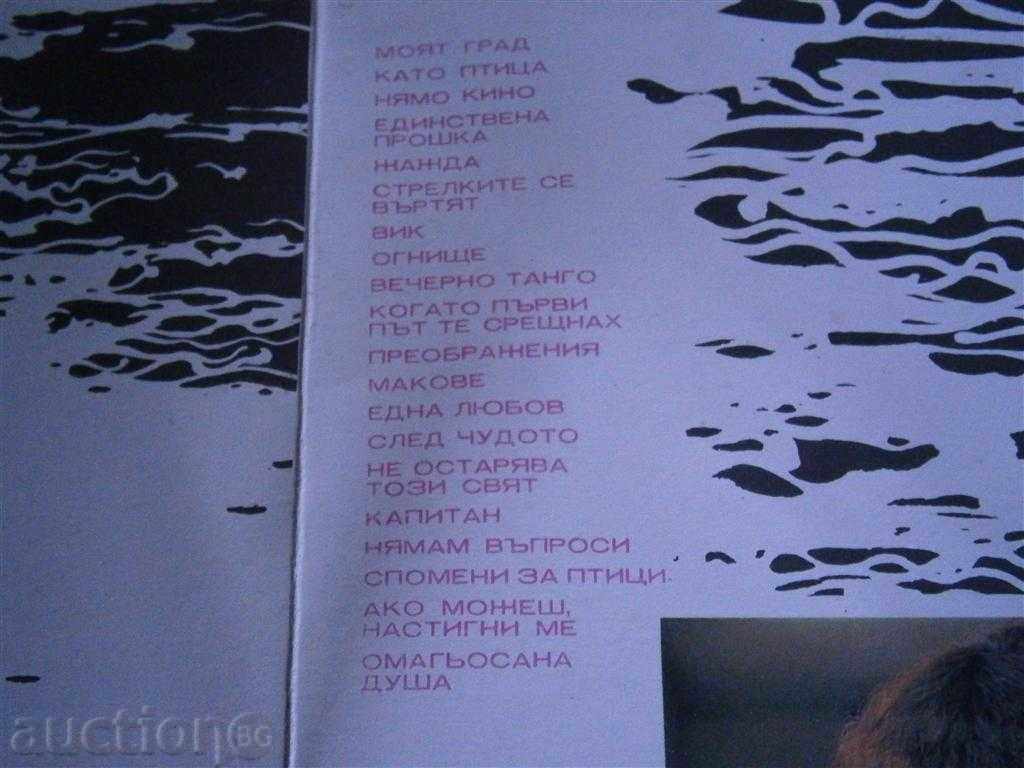 МОЯТ ГРАД
КАТО ПТИЦА
НЯМО КИНО
ЕДИНСТВЕНА
ПРОШКА
ЖАЖДА
СТРЕЛКИТЕ СЕ
ВЪРТЯТ
ВИК
ОГНИЩЕ
ВЕЧЕРНО ТАНГО
КОГАТО ПЪРВИ
ПЪТ ТЕ СРЕЩНАХ
ПРЕОБРАЖЕНИЯ
МАКОВЕ
ЕДНА ЛЮБОВ
СЛЕД ЧУДОТО
НЕ ОСТАРЯВА
ТОЗИ СВЯТ
КАПИТАН
НЯМАМ ВЪПРОСИ
СПОМЕНИ ЗА ПТИЦИ
АКО МОЖЕШ,
НАСТИГНИ МЕ
ОМАГЬОСАНА
ДУША
auction BG